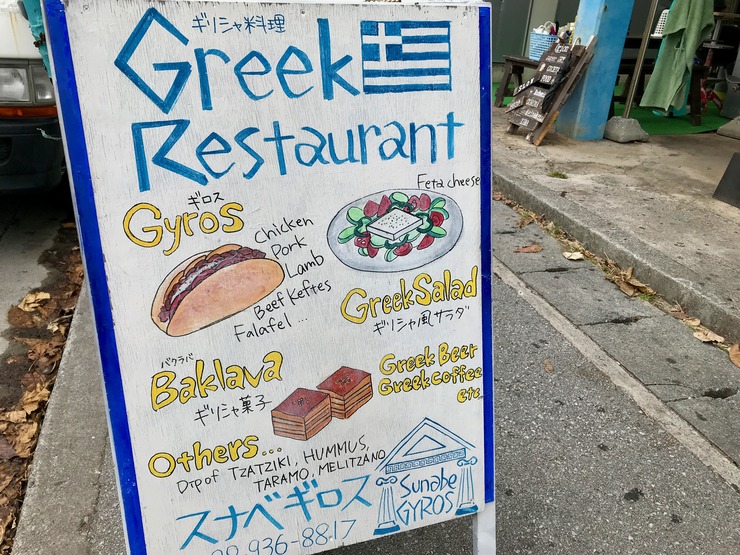 ギリシャ料理
Greek
Restaurant
ギロス
Gyros
Chicken
Pork
Lamb
Beef Keftes
Falafel...
Feta cheese
Greek Salad
ギリシャ風サラダ
バクラバ
Baklava
ギリシャ菓子
Greek Beer
Greek Coffee
etc.
Others...
Dip of TZATZIKI, HUMMUS,
TARAMO, MELITZANO
スナベギロス
936-8817
Sunabe
GYROS